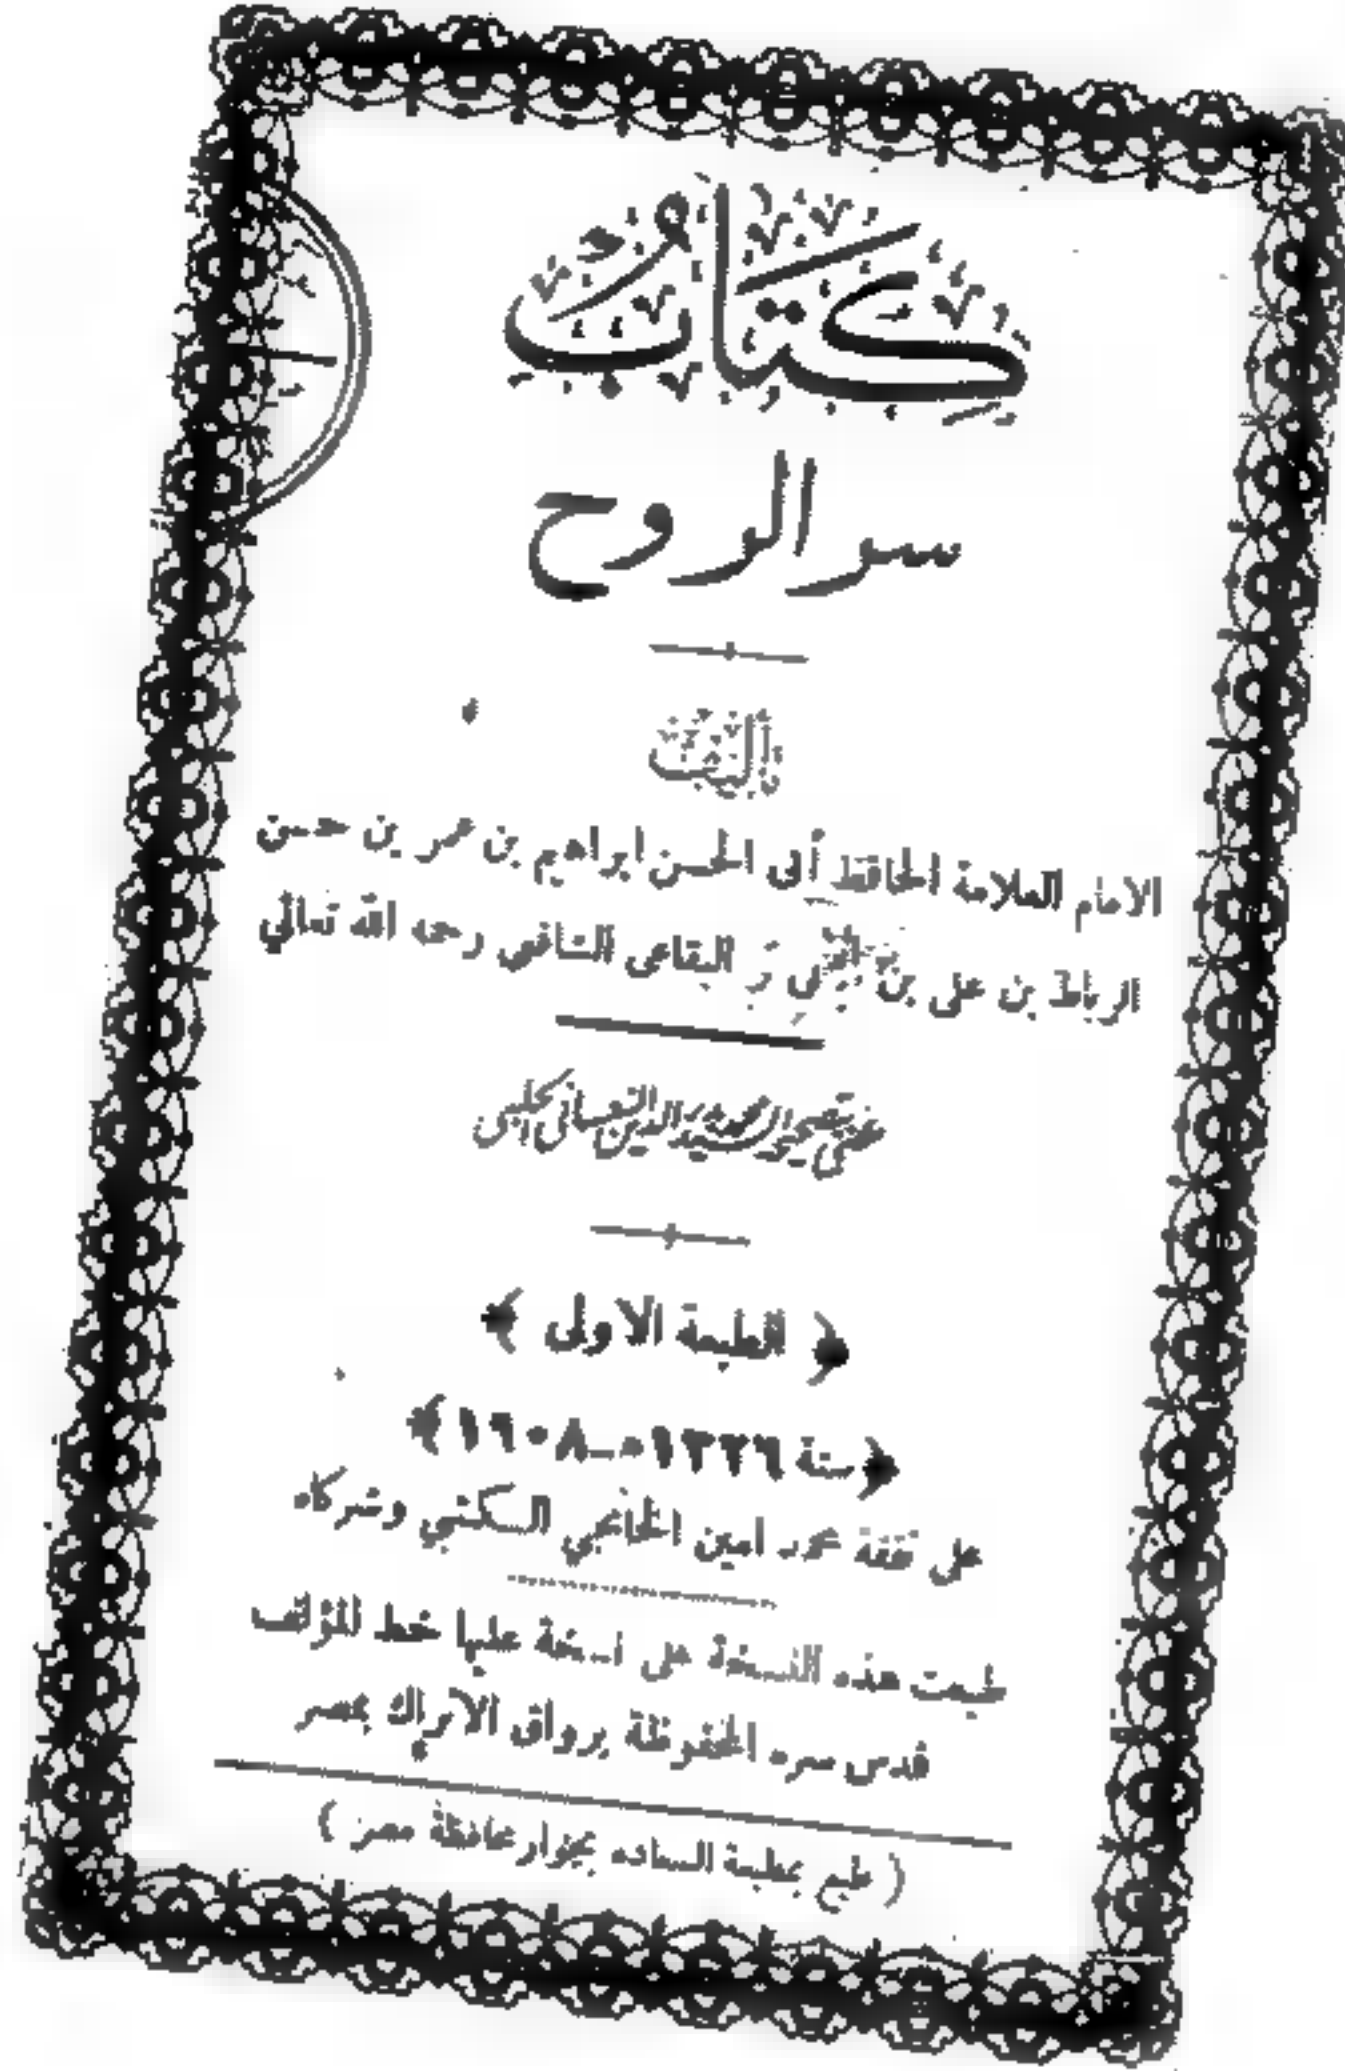 كتاب
سر الروح
تأليف
الامام العلامة الحافظ أبى الحسن ابراهيم بن عمر بن حسن
الرباط بن على بن البقاعى الشافعى رحمه الله تعالى
عنى بتصحيحه السيد محمد بدر الدين النعسانى الحلبى
﴿ الطبعة الاولى ﴾
﴿ سنة ١٣٢٦ه‍ ـ ١٩٠٨ ﴾
على نفقة محمد امين الخانجي الكتبي وشركاه
طبعت هذه النسخة على نسخة عليها خط المؤلف
قدس سره المحفوظة برواق الاتراك بمصر
( طبع بمطبعة السعاده بجوار محافظة مصر )